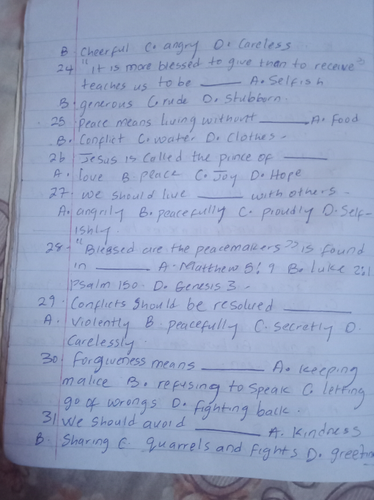 B. Cheerful C. angry D. Careless
24 "It is more blessed to give than to receive"
teaches us to be ____ A. Selfish
B. generous C. rude D. Stubborn.
25 peace means living without ____ A. Food
B. Conflict C. water D. Clothes.
26 Jesus is Called the prince of ____
A. love B peace C. Joy D. Hope
27. We should live ____ with others.
A. angrily B. peacefully C. proudly D. Self-
ishly.
28. "Blessed are the peacemakers" is found
in ____ A. Matthew 5:9 B. Luke 2:1
Psalm 150. D. Genesis 3.
29. Conflicts should be resolved ____
A. Violently B. peacefully C. secretly D.
Carelessly.
30. Forgiveness means ____ A. Keeping
malice B. refusing to speak C. letting
go of wrongs D. fighting back.
31 We should avoid ____ A. Kindness
B. Sharing C. quarrels and fights D.